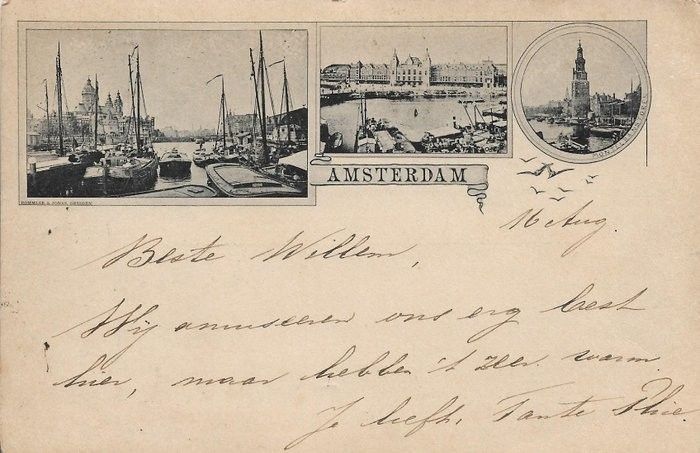 ROMMLER & JONAS, DRESDEN
AMSTERDAM
16 Aug.
Beste Willem,
Wij amuseeren ons erg best
hier, maar hebben 't zeer warm
Je liefh. Tante